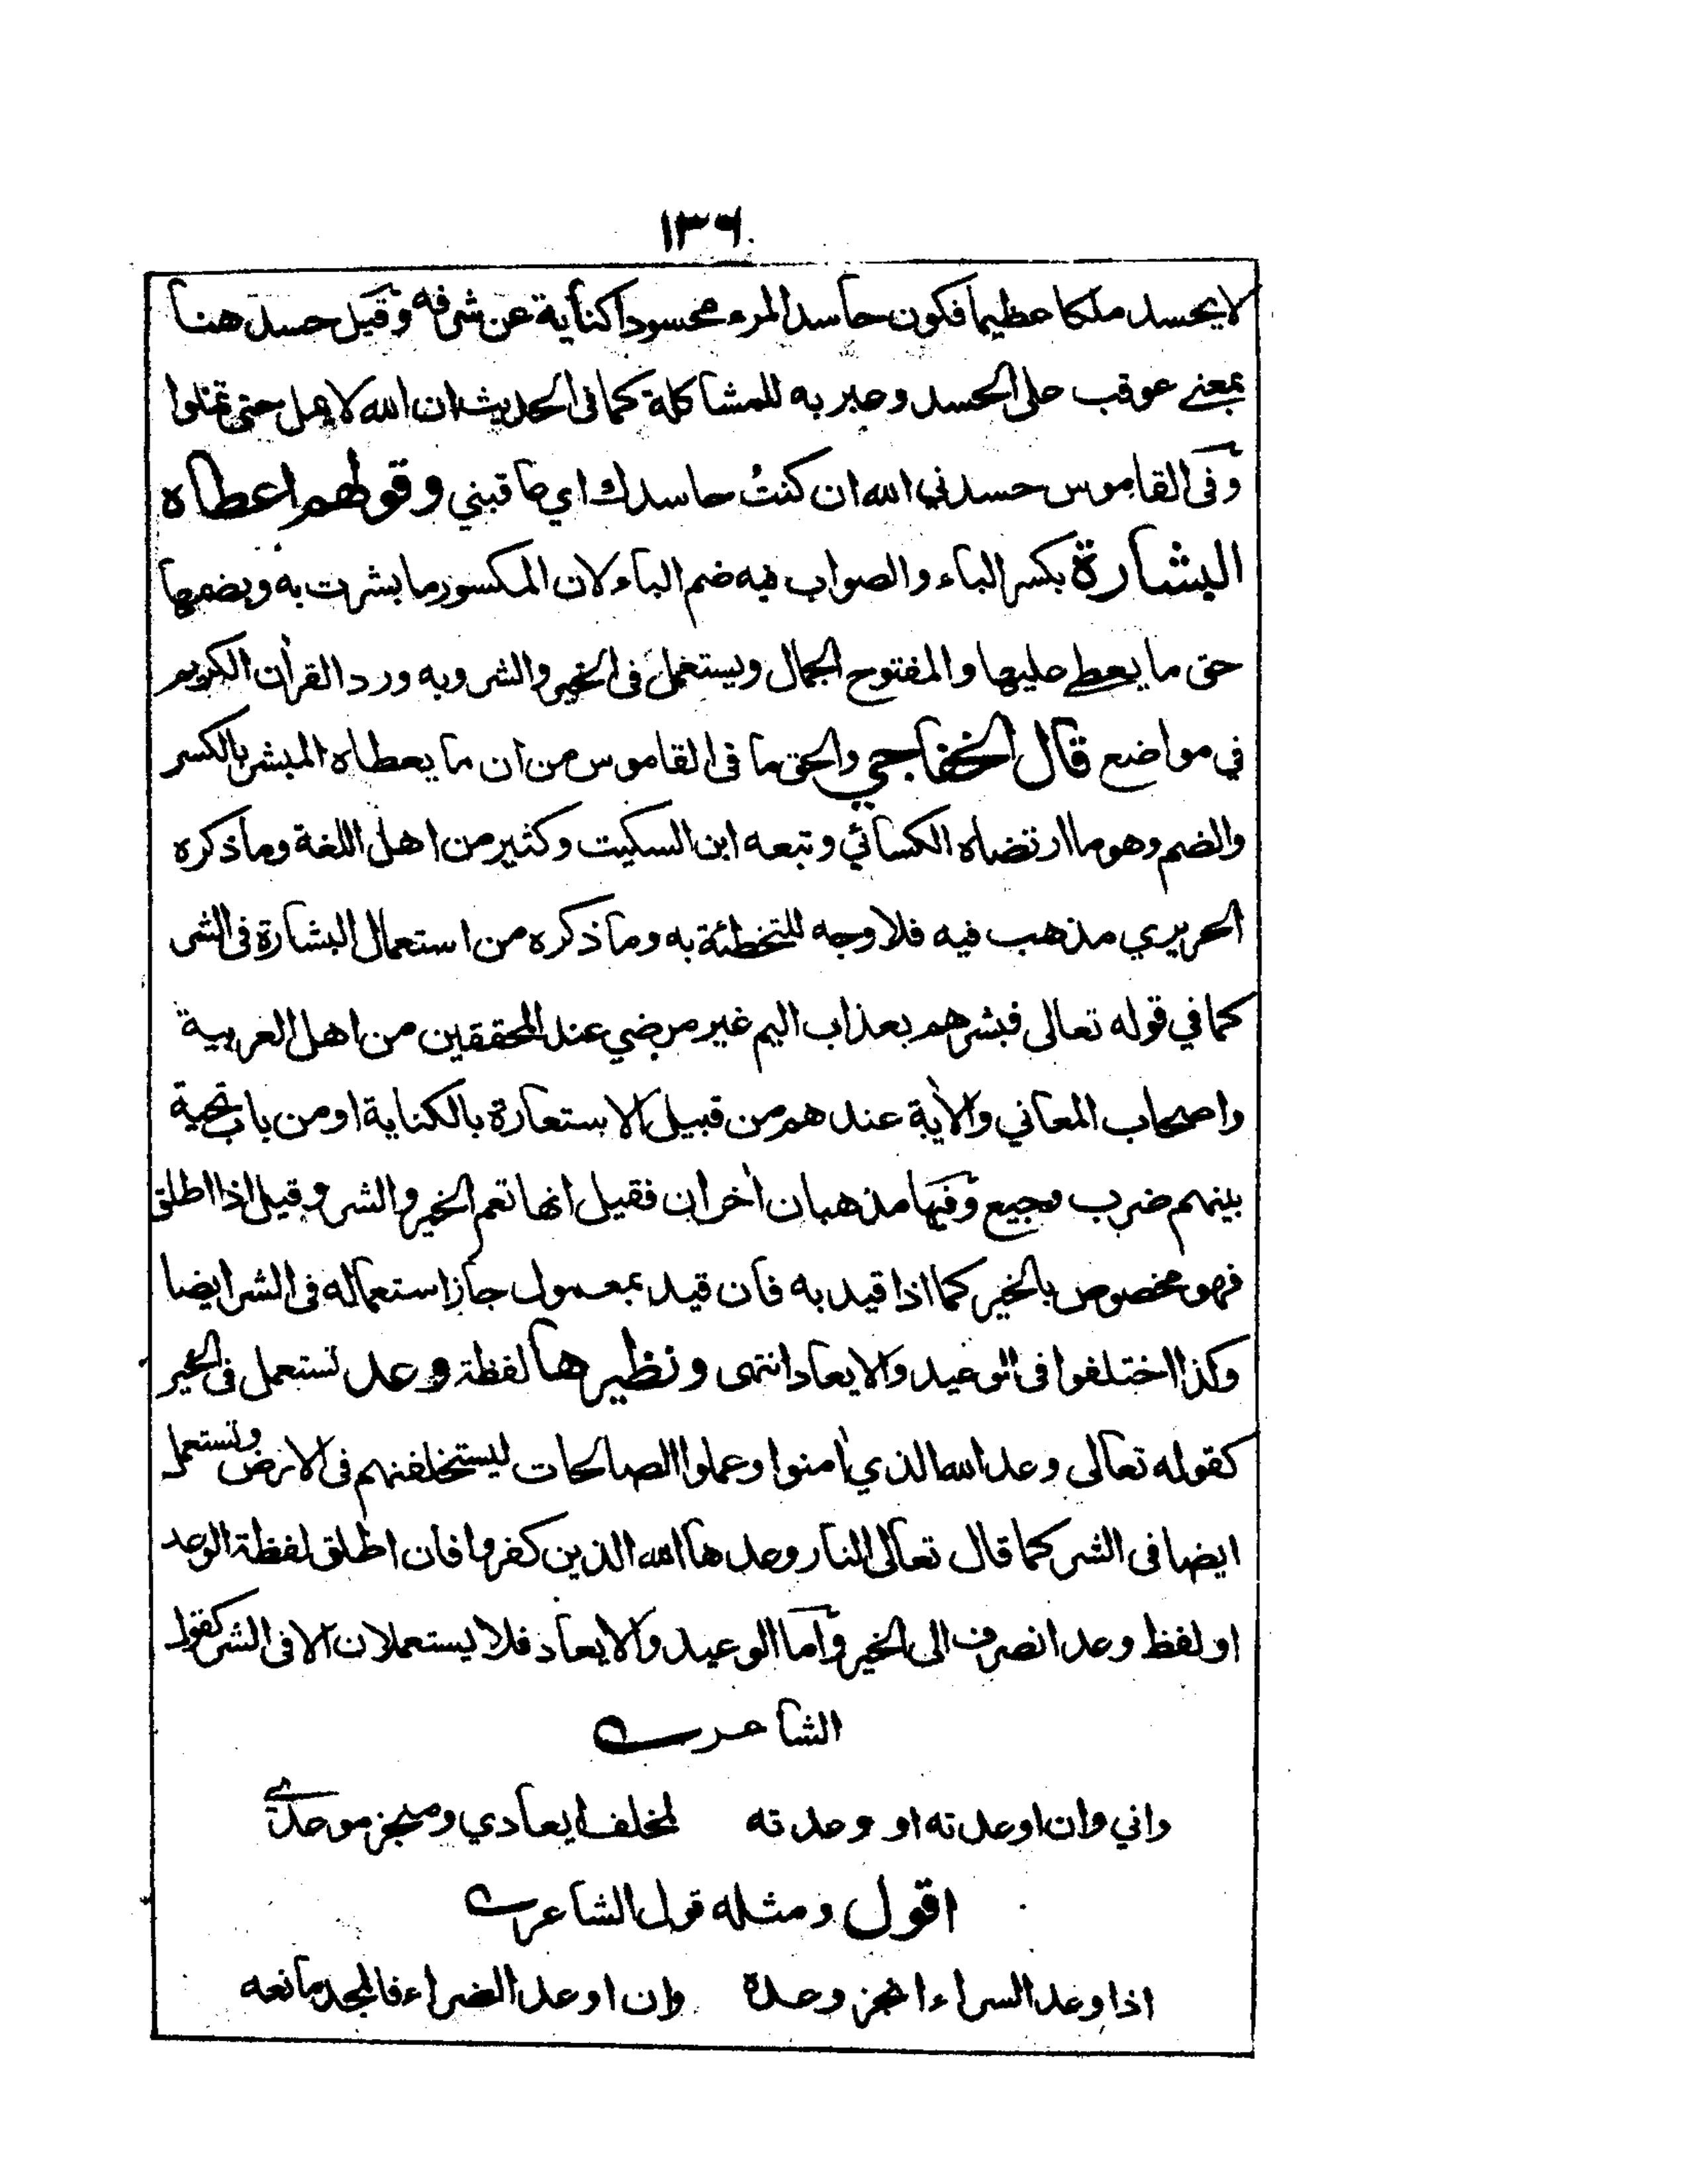 ١٣٦
لا يحسد ملكا عظيما فكون حاسد المرء محسودا كناية عن شرفه وقيل حسد هنا
بمعنى عوقب على الحسد وعبر به للمشاكلة كما في الحديث ان الله لا يمل حتى تملوا
وفى القاموس حسدني الله ان كنتُ حاسدك اي عاقبني وقولهم اعطاه
البشارة بكسر الباء والصواب فيه ضم الباء لان المكسور ما بشرت به وبضمها
حق ما يعطى عليها والمفتوح الجمال ويستعمل فى الخير والشر وبه ورد القرأن الكريم
في مواضع قال الخفاجي والحق ما فى القاموس من ان ما يعطاه المبشر بالكسر
والضم وهو ما ارتضاه الكسائي وتبعه ابن السكيت وكثير من اهل اللغة وما ذكره
الحريري مذهب فيه فلا وجه للتخطئة به وما ذكره من استعمال البشارة فى الشر
كما في قوله تعالى فبشرهم بعذاب اليم غير مرضي عند المحققين من اهل العربية
واصحاب المعاني والأية عندهم من قبيل الاستعارة بالكناية او من باب تحية
بينهم ضرب وجيع وفيها مذهبان أخران فقيل انها تعم الخير والشر وقيل اذا اطلق
فهو مخصوص بالخير كما اذا قيد به فان قيد بمعمول جاز استعماله فى الشر ايضا
وكذا اختلفوا فى الوعيد والايعاد انتهى ونظيرها لفظة وعد تستعمل فى الخير
كقوله تعالى وعد الله الذي أمنوا وعملوا الصالحات ليستخلفنهم فى الارض وتستعمل
ايضا فى الشر كما قال تعالى النار وعدها الله الذين كفروا فان اطلق لفظة الوعد
او لفظ وعد انصرف الى الخير وأما الوعيد والايعاد فلا يستعملان الا فى الشر كقول
الشاعر
واني وان اوعدته او وعدته لمخلف ايعادي ومنجز موعدي
اقول ومثله قول الشاعر
اذا وعد السراء انجز وعده وان اوعد الضراء فالمجد مانعه